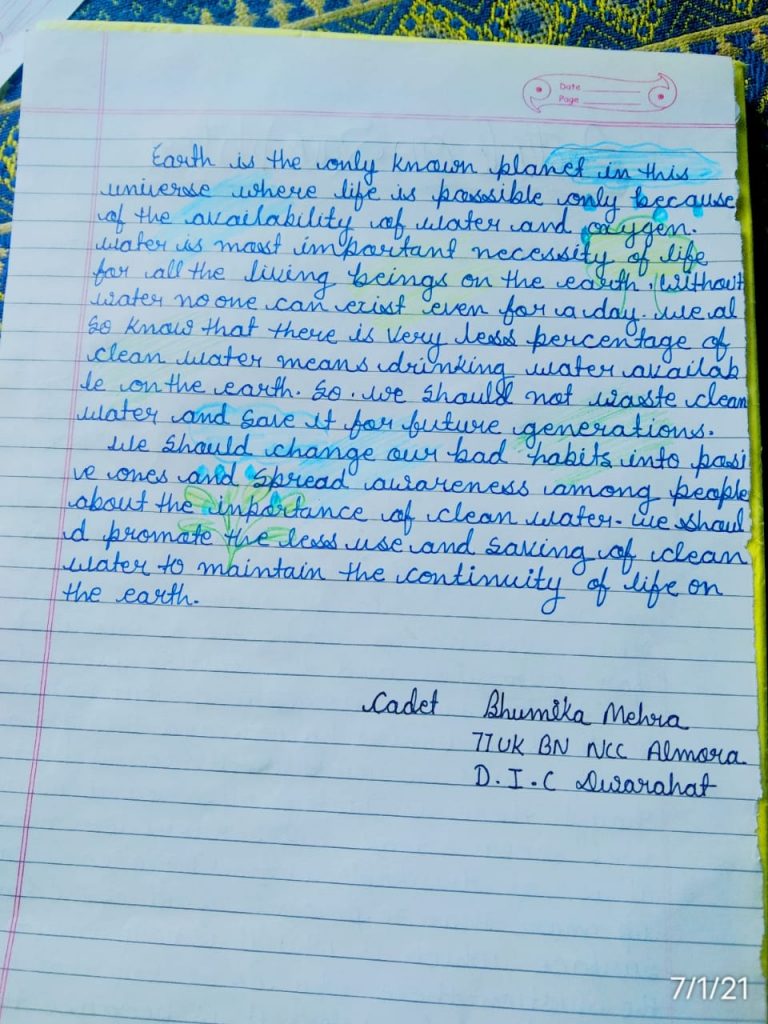 Date
Page
Earth is the only known planet in this
universe where life is possible only because
of the availability of water and oxygen.
Water is most important necessity of life
for all the living beings on the earth. Without
water no one can exist even for a day. We al
so know that there is very less percentage of
clean water means drinking water availab
le on the earth. So. we should not waste clean
water and save it for future generations.
We should change our bad habits into posi
ve ones and spread awareness among people
about the importance of clean water. We shoul
d promote the less use and saving of clean
water to maintain the continuity of life on
the earth.
Cadet Bhumika Mehra
77 UK BN NCC Almora
D.I.C Dwarahat
7/1/21